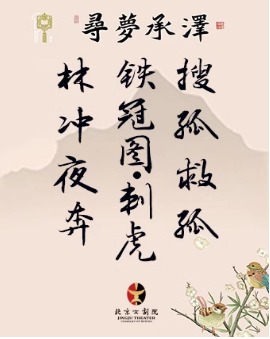 尋夢承澤
搜孤救孤
铁冠图·刺虎
林冲夜奔
北京京剧院
JINGJU THEATER